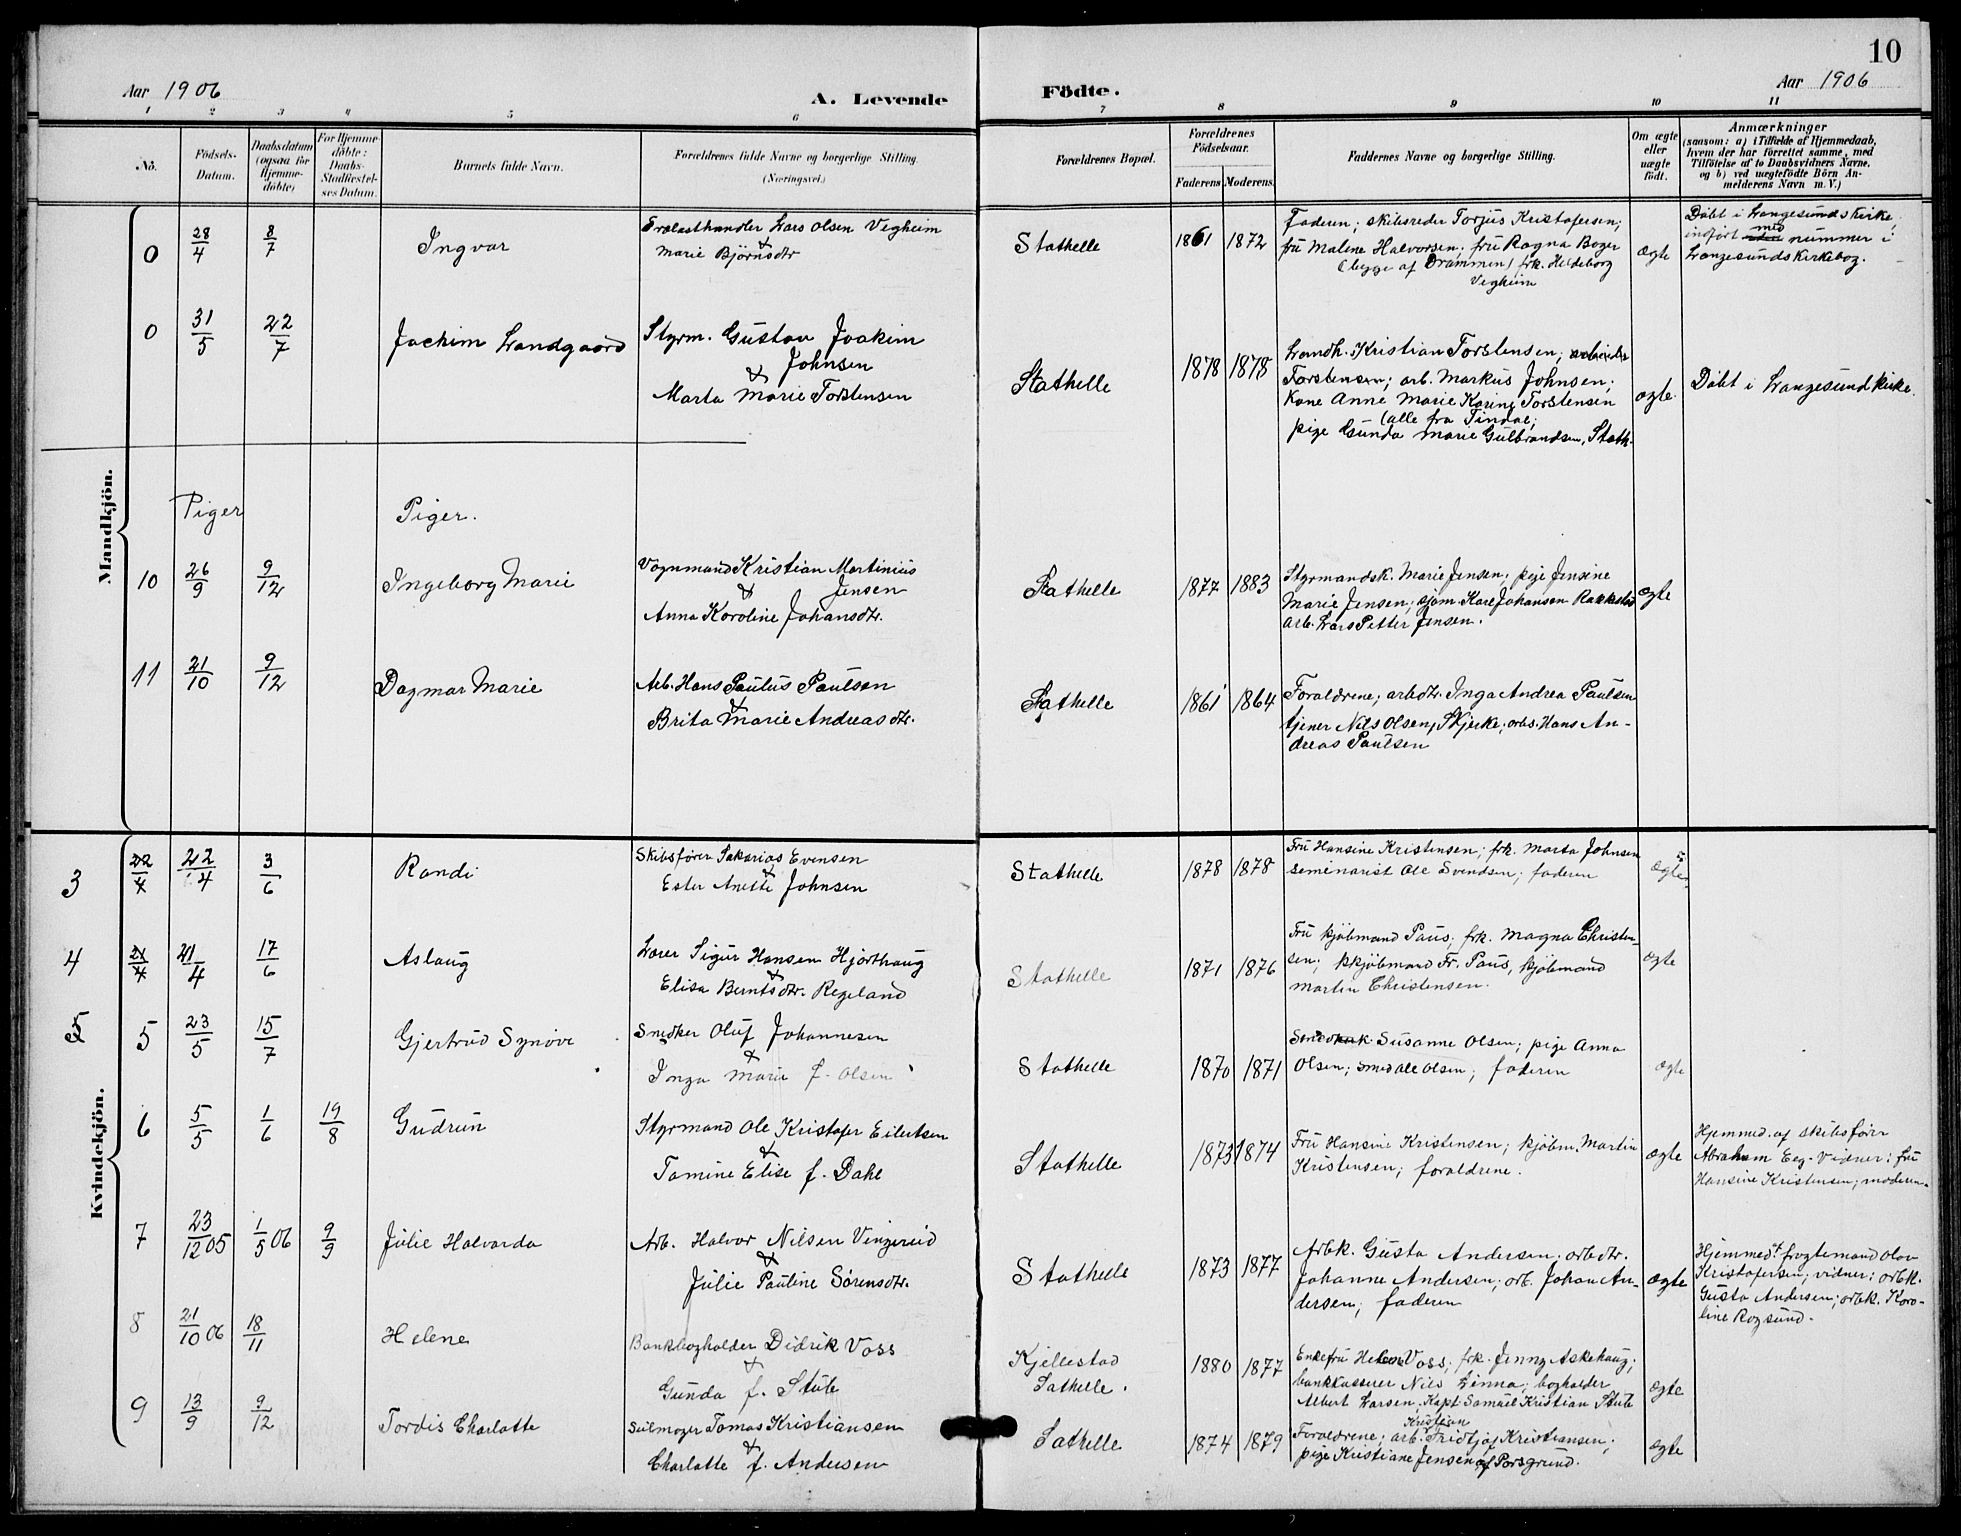 10
Aar 1906
A. Levende
Födte.
Aar 1906
1 2 3 4 5 6 7 8 9 10 11
No.
Födsels-Datum.
Daabsdatum (ogsaa for Hjemmedöbte)
For Hjemmedöbte: Daabs-Stadfæstelses Datum.
Barnets fulde Navn.
Forældrenes fulde Navne og borgerlige Stilling.
(Næringsvei.)
Forældrenes Bopæl.
Forældrenes Födselsaar.
Faderens Moderens.
Faddernes Navne og borgerlige Stilling.
Om ægte eller uægte födt.
Anmærkninger
(saasom: a) i Tilfælde af Hjemmedaab,
hvem der har forrettet samme, med
Tilföielse af to Daabsvidners Navne,
og b) ved uægtefödte Börn An-
melderens Navn m. V.)
Mandkjön.
0 28/4 8/7 Ingvar
Trælasthandler Lars Olsen Vegheim
&
Marie Bjørnsdtr
Stathelle 1861 1872
Faderen; skibsreder Torjus Kristofersen;
fru Malene Halvorsen; fru Ragna Boger
(begge af Drammen) frk. Hildeborg
Vegheim
ægte
Døbt i Langesunds kirke
indført med nummer i
Langesunds kirkebog.
0 31/5 22/7 Jachim Landgaard
Styrm. Gustav Joakim
Johnsen
&
Marta Marie Torstensen
Stathelle 1878 1878
Landh. Kristian Torstensen; arbeider
Torstensen; arb. Markus Johnsen;
kone Anne Marie Karine Torstensen
(alle fra Tindal;
pige Gunda Marie Gulbrandsen, Stath.
ægte.
Døbt i Langesund kirke.
Piger Piger.
10 26/9 9/12 Ingeborg Marie
Vognmand Kristian Martinius
Jensen
&
Anna Karoline Johansdtr.
Stathelle 1877 1883
Styrmandsk. Marie Jensen; pige Jensine
Marie Jensen; sjøm. Kare Johansen Rakkestad
arb. Lars Petter Jensen.
ægte
11 21/10 9/12 Dagmar Marie
Arb. Hans Paulus Paulsen
&
Brita Marie Andreasdtr.
Stathelle 1861 1864
Forældrene; arbdtr. Inga Andrea Paulsen
tjener Nils Olsen, Skjerke; arbs. Hans An-
dreas Paulsen
Kvindekjön.
3 22/4 22/4 3/6 Randi
Skibsfører Sakarias Evensen
&
Ester Anette Johnsen
Stathelle 1878 1878
Fru Hansine Kristensen; frk. Marta Johnsen
seminarist Ole Svendsen; faderen
ægte
4 21/4 21/4 17/6 Aslaug
Lærer Sigur Hansen Hjorthaug
&
Elisa Berntsdtr. Regeland
Stathelle 1871 1876
Fru kjøbmand Paus; frk. Magna Christen-
sen; kkjøbmand Fr. Paus, kjøbmand
Martin Christensen.
ægte
5 5 23/5 15/7 Gjertrud Synøve
Snedker Oluf Johannesen
&
Inga Marie f. Olsen
Stathelle 1870 1871
Susanne Olsen; pige Anna
Olsen; smed Ole Olsen; faderen
ægte
6 5/5 1/6 19/8 Gudrun
Styrmand Ole Kristofer Eilertsen
&
Tomine Elise f. Dahl
Stathelle 1873 1874
Fru Hansine Kristensen; kjøbm. Martin
Kristensen; forældrene.
ægte
Hjemmed. af skibsfører
Abraham Eeg. Vidner: fru
Hansine Kristensen; moderen.
7 23/12 05 1/5 06 9/9 Julie Halvarda
Arb. Halvor Nilsen Vingereid
&
Julie Pauline Sørensdtr.
Stathelle 1873 1877
Arbk. Gusta Andersen; arbdtr.
Johanne Andersen; arb. Johan An-
dersen; faderen
ægte
Hjemmedt. fragtemand Olav
Kristofersen; vidner: arbk.
Gusta Andersen; arbk. Karo-
line Rogsund.
8 21/10 06 18/11 Helene
Bankbogholder Didrik Voss
&
Gunda f. Stub
Kjellestad
Sathelle. 1880 1877
Enkefru Helene Voss; frk. Jenny Askehaug;
bankkasserer Nils Linna; bogholder
Albert Larsen, Kapt. Samuel Kristian Stub
ægte
9 13/9 9/12 Tordis Charlotte
Seilmager Tomas Kristiansen
&
Charlotte f. Andersen
Sathelle 1874 1879
Kristian
Forældrene; arb. Fridtjof Kristiansen;
pige Kristiane Jensen af Porsgrund.
ægte